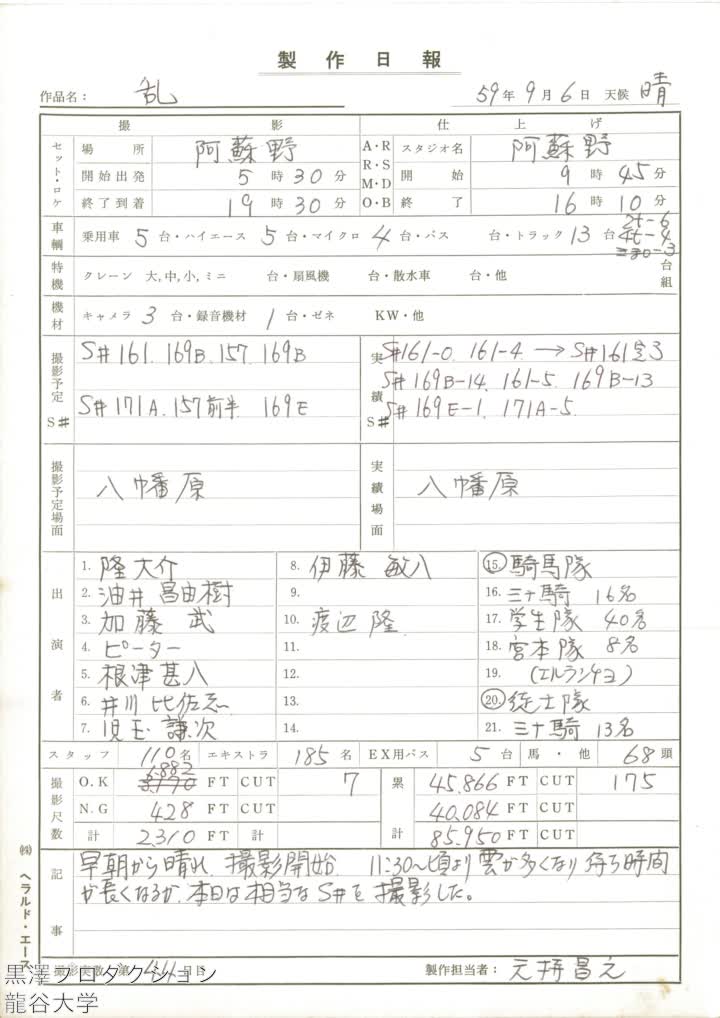 製作日報
作品名： 乱 59年 9月 6日 天候 晴
撮影 仕上げ
セット・ロケ 場所 阿蘇野 A・R スタジオ名 阿蘇野
開始出発 5時30分 R・S M・D 開始 9時45分
終了到着 19時30分 O・B 終了 16時10分
車輛 乗用車 5台・ハイエース 5台・マイクロ 4台・バス 台・トラック 13台 2t-6 4t-4
特機 クレーン 大,中,小,ミニ 台・扇風機 台・散水車 台・他 台組
機材 キャメラ 3台・録音機材 1台・ゼネ KW・他
撮影予定 S# S#161. 169B. 157. 169B
S#171A. 157前半 169E
実績 S# S#161-0. 161-4. → S#161定3
S#169B-14. 161-5. 169B-13
S#169E-1. 171A-5.
撮影予定場面 八幡原 実績場面 八幡原
出演者
1. 隆大介 8. 伊藤敏八 ⑮. 騎馬隊
2. 油井昌由樹 9. 16. 三十騎 16名
3. 加藤武 10. 渡辺隆 17. 学生隊 40名
4. ピーター 11. 18. 宮本隊 8名
5. 根津甚八 12. 19. (エルランチョ)
6. 井川比佐志 13. ⑳. 徒士隊
7. 児玉謙次 14. 21. 三十騎 13名
スタッフ 110名 エキストラ 185名 EX用バス 5台 馬・他 68頭
撮影尺数 O.K 1.882 FT CUT 7 累計 45.866 FT CUT 175
N.G 428 FT 40.084 FT
計 2.310 FT 計 85.950 FT
記事 早朝から晴れ、撮影開始. 11:30〜頃より雲が多くなり待ち時間
が長くなるが、本日は相当なS#を撮影した。
撮影実数 第44日目 製作担当者： 元持昌之
㈱ヘラルド・エース
黒澤プロダクション
龍谷大学